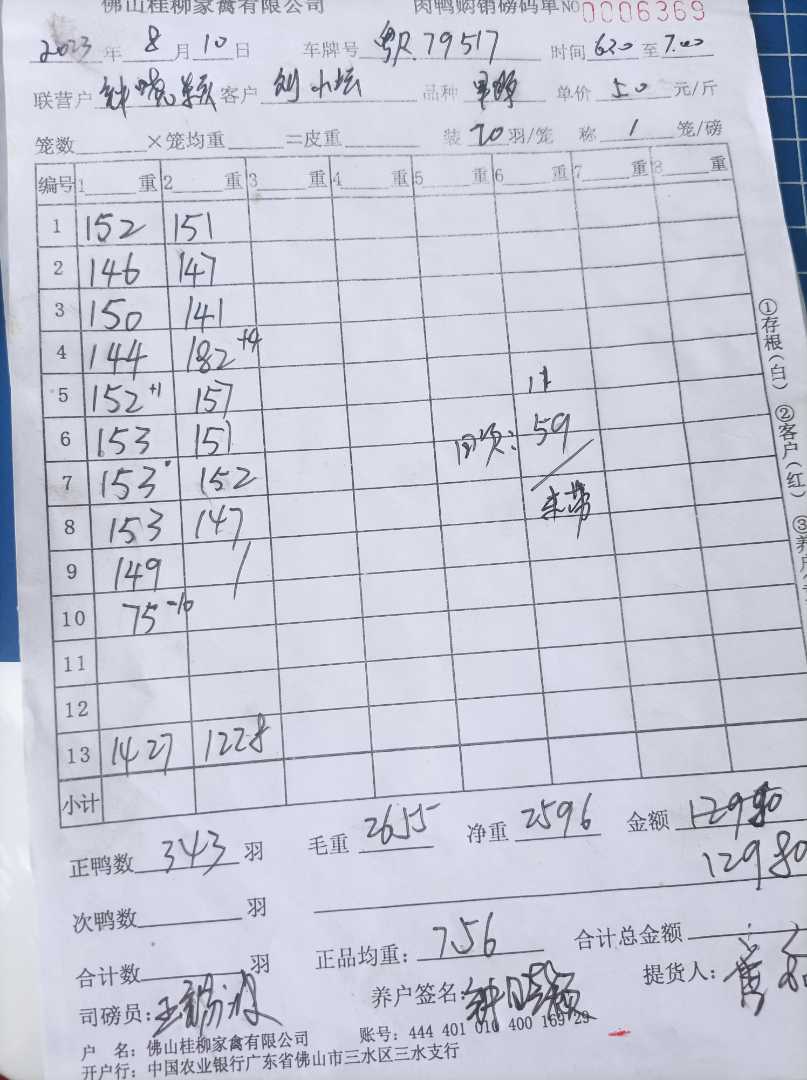 佛山桂柳家禽有限公司 肉鸭购销磅码单NO0006369
2023年8月10日 车牌号 粤R.79517 时间6:20至7:00
联营户 客户 刘小坛 品种 单价 5.0 元/斤
笼数 ×笼均重 =皮重 装20羽/笼 称1笼/磅
编号 1 重 2 重 3 重 4 重 5 重 6 重 7 重 8 重
1 152 151
2 146 147
3 150 141
4 144 182+4
5 152+1 157
6 153 151
7 153 152
8 153 147
9 149 /
10 75-10
11
12
13 1427 1228
小计
回类: 59
正鸭数 343 羽 毛重 2655 净重 2596 金额 12980
12980
次鸭数 羽
合计数 羽 正品均重: 7.56 合计总金额
司磅员: 养户签名: 提货人:
户 名: 佛山桂柳家禽有限公司 账号: 444 401 010 400 169 29
开户行: 中国农业银行广东省佛山市三水区三水支行
①存根(白) ②客户(红) ③养户